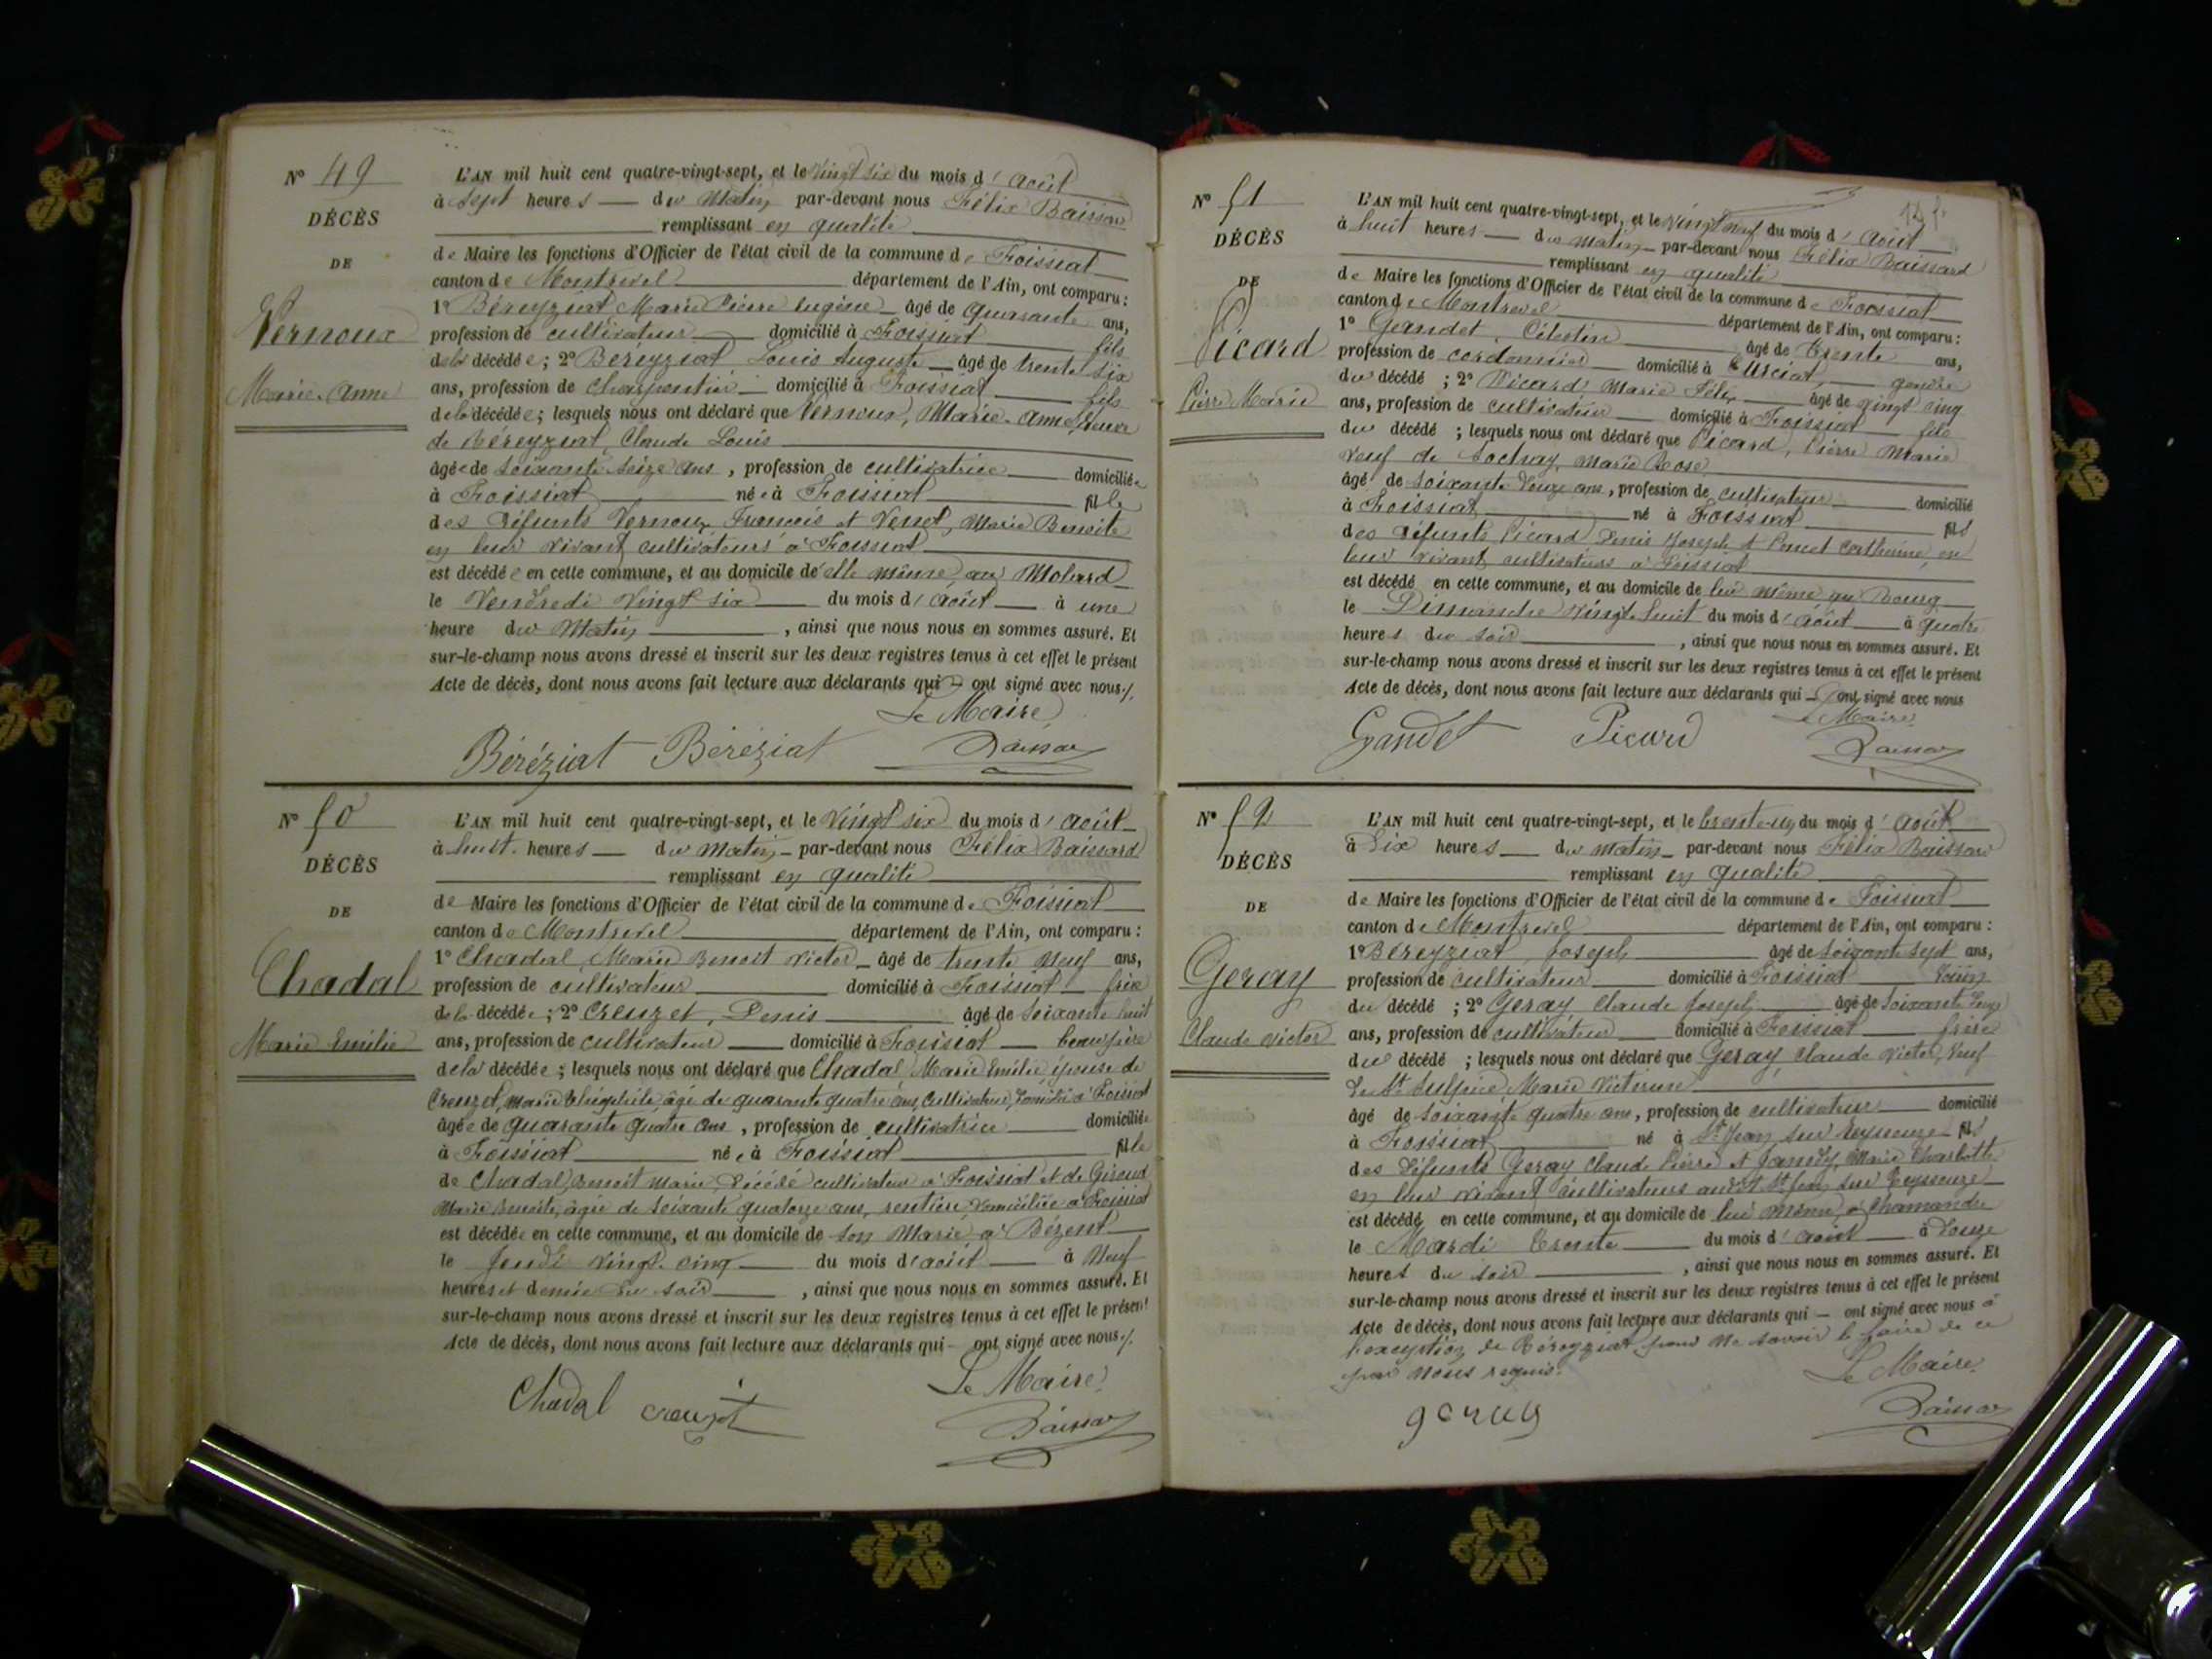 N° 49
DÉCÈS
DE
Vernoux
Marie-Anne
L'AN mil huit cent quatre-vingt-sept, et le Vingt six du mois d'août
à Sept heures du Matin par-devant nous Félix Baissard
remplissant en qualité
de Maire les fonctions d'Officier de l'état civil de la commune de Foissiat
canton de Montrevel département de l'Ain, ont comparu :
1° Béreyziat Marie Pierre Eugène âgé de Quarante ans,
profession de cultivateur domicilié à Foissiat fils
de la décédée ; 2° Bereyziat Louis Auguste âgé de trente six
ans, profession de Charpentier domicilié à Foissiat fils
de la décédée ; lesquels nous ont déclaré que Vernoux, Marie-Anne, Veuve
de Béreyziat, Claude Louis
âgée de soixante seize ans, profession de cultivatrice domiciliée
à Foissiat née à Foissiat fille
des défunts Vernoux François et Venet, Marie Benoite
en leur vivant cultivateurs à Foissiat
est décédée en cette commune, et au domicile de elle même, au Molard
le Vendredi Vingt six du mois d'août à une
heure du Matin, ainsi que nous nous en sommes assuré. Et
sur-le-champ nous avons dressé et inscrit sur les deux registres tenus à cet effet le présent
Acte de décès, dont nous avons fait lecture aux déclarants qui ont signé avec nous./.
Le Maire
Béréziat Béréziat Baissard
N° 50
DÉCÈS
DE
Chadal
Marie Emilie
L'AN mil huit cent quatre-vingt-sept, et le Vingt six du mois d'août
à huit heures du matin par-devant nous Félix Baissard
remplissant en qualité
de Maire les fonctions d'Officier de l'état civil de la commune de Foissiat
canton de Montrevel département de l'Ain, ont comparu :
1° Chadal, Marie Benoit Victor âgé de trente neuf ans,
profession de cultivateur domicilié à Foissiat frère
de la décédée ; 2° Creuzet, Denis âgé de soixante huit
ans, profession de cultivateur domicilié à Foissiat beau père
de la décédée ; lesquels nous ont déclaré que Chadal Marie Emilie épouse de
Creuzet, Marie âgé de quarante quatre ans, Cultivateur, domicilié à Foissiat
âgée de quarante quatre ans, profession de cultivatrice domiciliée
à Foissiat née à Foissiat fille
de Chadal, Benoit Marie, décédé cultivateur à Foissiat et de Giraud
Marie Benoite, âgée de soixante quatorze ans, rentière, domiciliée à Foissiat
est décédée en cette commune, et au domicile de son Marié à Bézent
le Jeudi vingt-cinq du mois d'août à Neuf
heures et demie du soir, ainsi que nous nous en sommes assuré. Et
sur-le-champ nous avons dressé et inscrit sur les deux registres tenus à cet effet le présent
Acte de décès, dont nous avons fait lecture aux déclarants qui - ont signé avec nous./.
Le Maire
Chadal creuzet Baissard
N° 51
DÉCÈS
DE
Picard
Pierre Marie
L'AN mil huit cent quatre-vingt-sept, et le Vingt neuf du mois d'août
à huit heures du matin par-devant nous Félix Baissard
remplissant en qualité
de Maire les fonctions d'Officier de l'état civil de la commune de Foissiat
canton de Montrevel département de l'Ain, ont comparu :
1° Gandet Célestin âgé de Trente ans,
profession de cordonnier domicilié à Curciat, gendre
du décédé ; 2° Picard Marie Félix âgé de vingt cinq
ans, profession de cultivateur domicilié à Foissiat fils
du décédé ; lesquels nous ont déclaré que Picard, Pierre Marie
Veuf de Sochay, Marie Rose
âgé de soixante douze ans, profession de cultivateur domicilié
à Foissiat né à Foissiat fils
des défunts Picard Denis Joseph et Poncet Catherine, en
leur vivant cultivateurs à Foissiat
est décédé en cette commune, et au domicile de lui même au Bourg
le Dimanche Vingt-huit du mois d'août à quatre
heures du soir, ainsi que nous nous en sommes assuré. Et
sur-le-champ nous avons dressé et inscrit sur les deux registres tenus à cet effet le présent
Acte de décès, dont nous avons fait lecture aux déclarants qui - ont signé avec nous
Le Maire
Gandet Picard Baissard
N° 52
DÉCÈS
DE
Geray
Claude Victor
L'AN mil huit cent quatre-vingt-sept, et le trente-un du mois d'août
à Dix heures du matin par-devant nous Félix Baissard
remplissant en qualité
de Maire les fonctions d'Officier de l'état civil de la commune de Foissiat
canton de Montrevel département de l'Ain, ont comparu :
1° Béreyziat, Joseph âgé de soixante sept ans,
profession de cultivateur domicilié à Foissiat Voisin
du décédé ; 2° Geray Claude Joseph âgé de soixante
ans, profession de cultivateur domicilié à Foissiat frère
du décédé ; lesquels nous ont déclaré que Geray, Claude Victor, Veuf
de St Sulpice Marie Victorine
âgé de soixante quatre ans, profession de cultivateur domicilié
à Foissiat né à St Jean sur Reyssouze fils
des défunts Geray Claude Pierre et Jandy, Marie Charlotte
en leur vivant cultivateurs audit St Jean sur Reyssouze
est décédé en cette commune, et au domicile de lui même, à Chamandre
le Mardi trente du mois d'août à Douze
heures du soir, ainsi que nous nous en sommes assuré. Et
sur-le-champ nous avons dressé et inscrit sur les deux registres tenus à cet effet le présent
Acte de décès, dont nous avons fait lecture aux déclarants qui - ont signé avec nous à
l'exception de Béreyziat, pour ne savoir le faire de ce
par nous requis.
Le Maire
geray Baissard